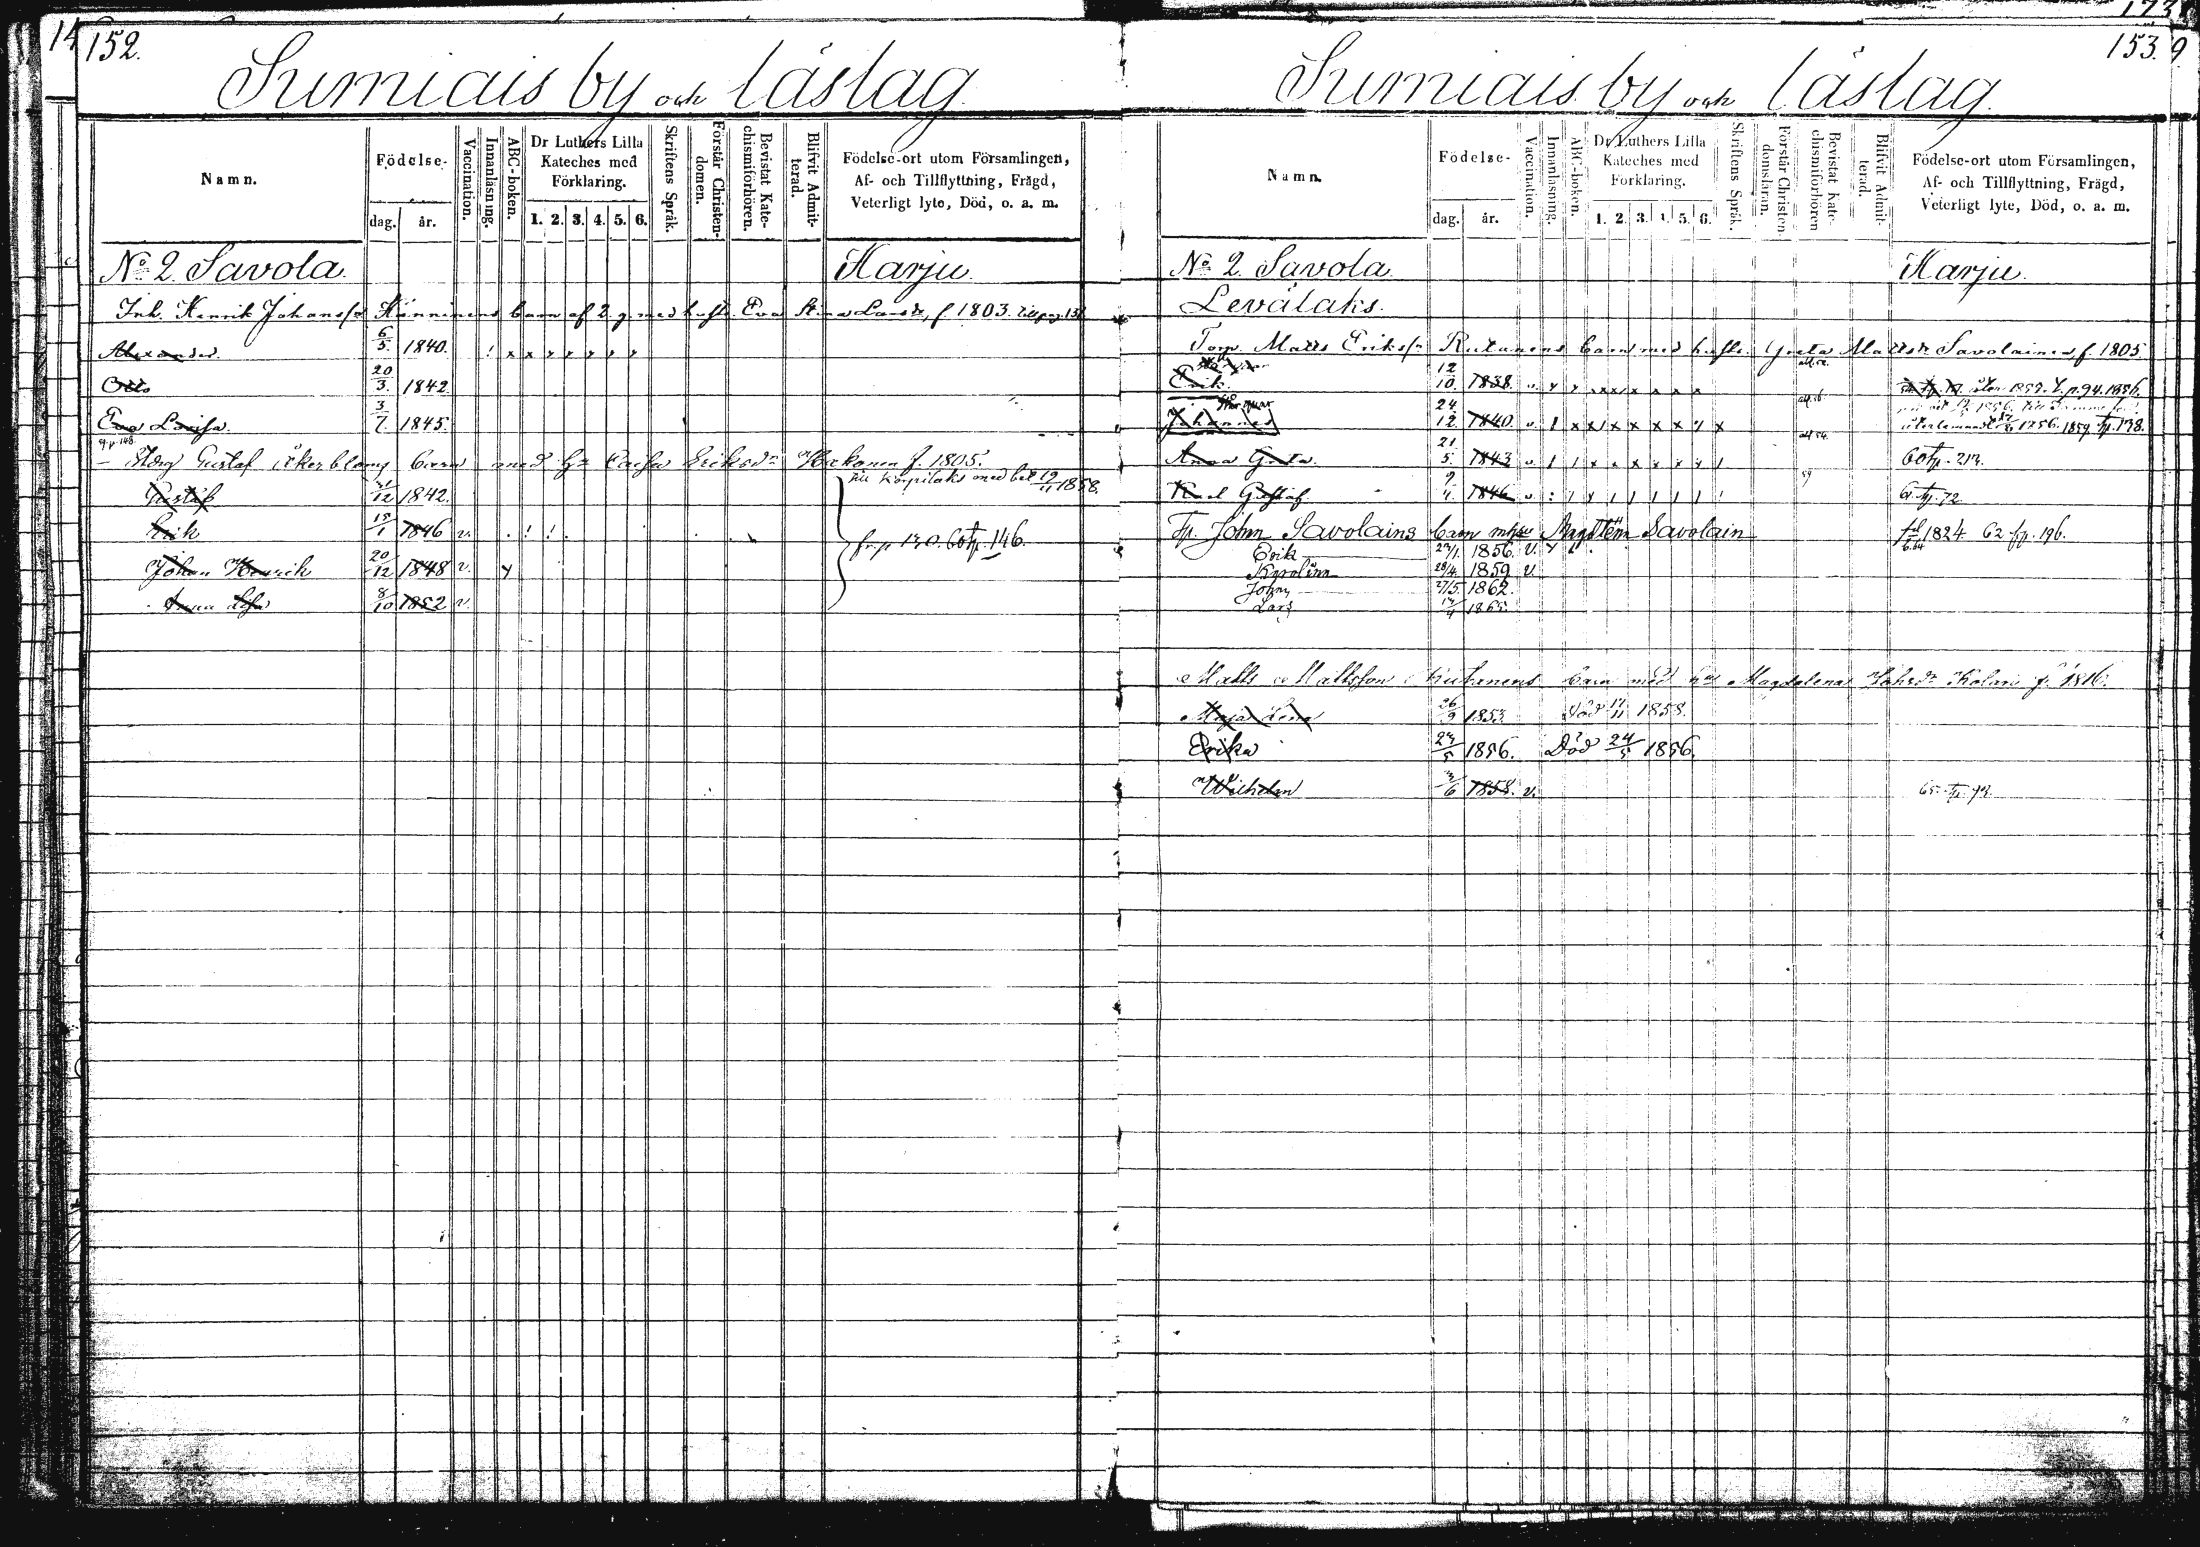 152.
Sumiais by och läslag
Namn.
Födelse-
dag.
år.
Vaccination.
Innanläsning.
ABC-boken.
Dr Luthers Lilla
Kateches med
Förklaring.
1. 2. 3. 4. 5. 6.
Skriftens Språk.
Förstår Christen-
domen.
Bevistat Kate-
chismiförhören.
Blifvit Admit-
terad.
Födelse-ort utom Församlingen,
Af- och Tillflyttning, Frägd,
Veterligt lyte, Död, o. a. m.
No 2 Savola. Harju.
Inh. Henrik Johanss. Hänninens barn af 2 g. med hust. Eva Stina f 1803.
Alexander 6/5. 1840.
Otto 20/3. 1842
Eva Lovisa 3/7. 1845.
Gustaf Åkerbloms barn med Caisa Eriksdr f. 1805.
till Korpilaks med bet 19/11 1858.
Gustaf /12 1842.
Erik 15/1 1846 v.
fr. p 130. 60 tp. 146.
Johan Henrik 20/12 1848 v.
Anna Lisa 8/10 1852 v.
153.
Sumiais by och läslag.
Namn.
Födelse-
dag.
år.
Vaccination.
Innanläsning.
ABC-boken.
Dr Luthers Lilla
Kateches med
Förklaring.
1. 2. 3. 4. 5. 6.
Skriftens Språk.
Förstår Christen-
domsläran.
Bevistat Kate-
chismiförhören
Blifvit Admit-
terad.
Födelse-ort utom Församlingen,
Af- och Tillflyttning, Frägd,
Veterligt lyte, Död, o. a. m.
No 2. Savola Harju.
Levälaks.
Torp. Matts Erikss. Rutanens barn med hust. Greta Mattsdr Savolainen f. 1805.
Erik. 12/10. 1838. v. p. 94. 1856.
Johannes 24/12. 1840. v. 1856. 1859. tp. 138.
Anna Greta. 21/5. 1843 v. 60 tp. 213.
Karl Gustaf 9/4. 1846 v. 61. tp. 72
Tp. John Savolains barn mhu Magdlena Savolain 1824 62 fp. 196.
Erik 29/1. 1856. v.
Karolina 28/4. 1859 v.
John 27/5. 1862.
Lars 1865.
Matts Mattsson Ruhanens barn med hu Magdalena Johsdr Kolari f. 1816.
Maja Lena 26/9 1853. Död 17/11 1858.
Erika 23/5 1856. Död 24/5 1856.
Wilhelm 3/6 1858. v. 65. tp. 72.